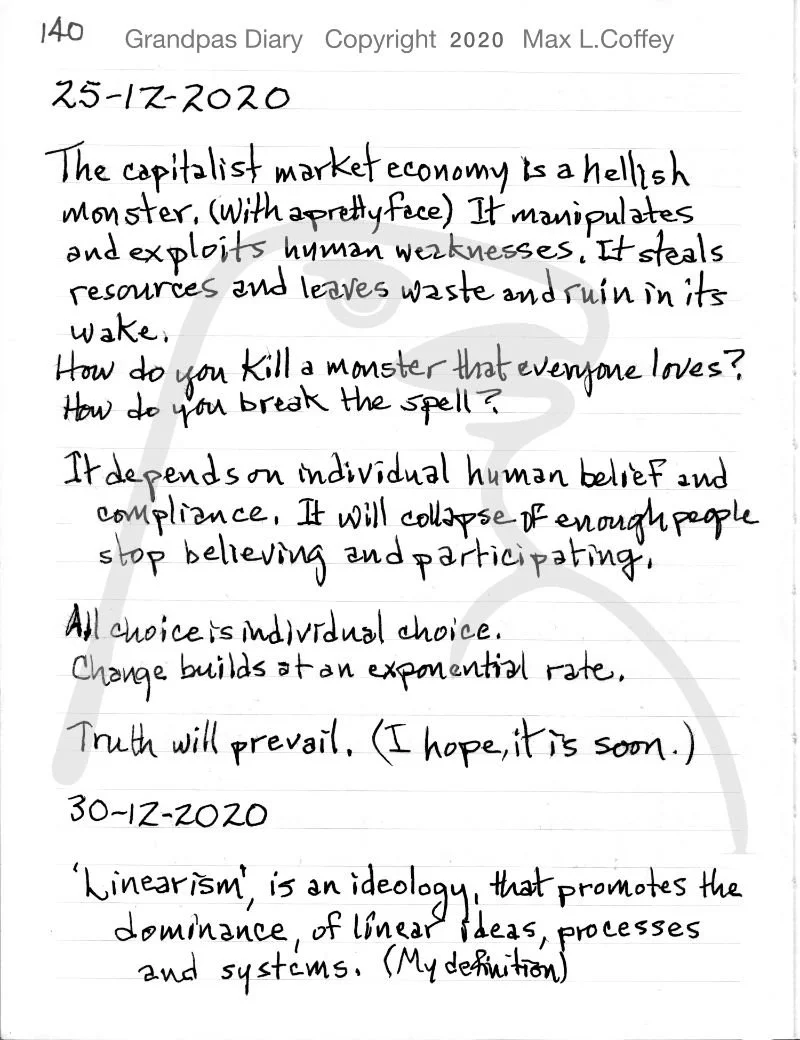 140
Grandpas Diary Copyright 2020 Max L.Coffey
25-12-2020
The capitalist market economy is a hellish
monster. (with a pretty face) It manipulates
and exploits human weaknesses. It steals
resources and leaves waste and ruin in its
wake.
How do you kill a monster that everyone loves?
How do you break the spell?
It depends on individual human belief and
compliance. It will collapse if enough people
stop believing and participating.
All choice is individual choice.
Change builds at an exponential rate.
Truth will prevail. (I hope, it is soon.)
30-12-2020
'Linearism', is an ideology, that promotes the
dominance, of linear ideas, processes
and systems. (My definition)